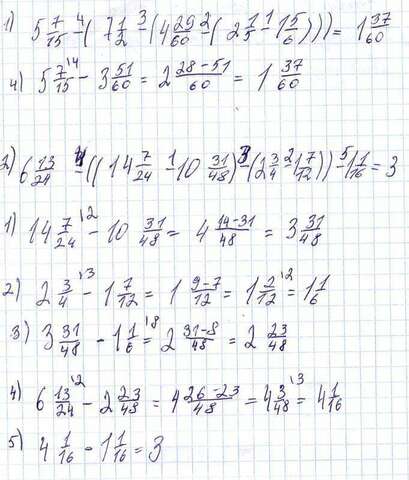 1) 5 7/15 -⁴ (7 1/2 -³ (4 29/60 -² (2 1/5 -¹ 1 5/6))) = 1 37/60
4) 5 7/15 \⁴ - 3 51/60 = 2 (28-51)/60 = 1 37/60
2) 6 13/24 -⁴ ((14 7/24 -¹ 10 31/48) -³ (2 3/4 -² 1 7/12)) -⁵ 1 1/16 = 3
1) 14 7/24 \² - 10 31/48 = 4 (14-31)/48 = 3 31/48
2) 2 3/4 \³ - 1 7/12 = 1 (9-7)/12 = 1 2/12 \² = 1 1/6
3) 3 31/48 - 1 1/6 \⁸ = 2 (31-8)/48 = 2 23/48
4) 6 13/24 \² - 2 23/48 = 4 (26-23)/48 = 4 3/48 \³ = 4 1/16
5) 4 1/16 - 1 1/16 = 3